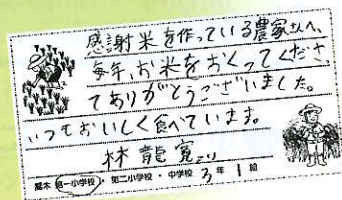 感謝米を作っている農家さんへ、
毎年、お米をおくってくださっ
てありがとうございました。
いつもおいしく食べています。
林 龍寛より
喬木 第一小学校・第二小学校・中学校 3年 1組